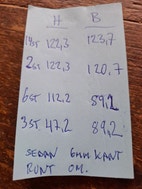 H B
1 ST 122,3 123,7
2 ST 122,3 120,7
6 ST 112,2 89,2
3 ST 47,2 89,2
SEDAN 6MM KANT
RUNT OM.